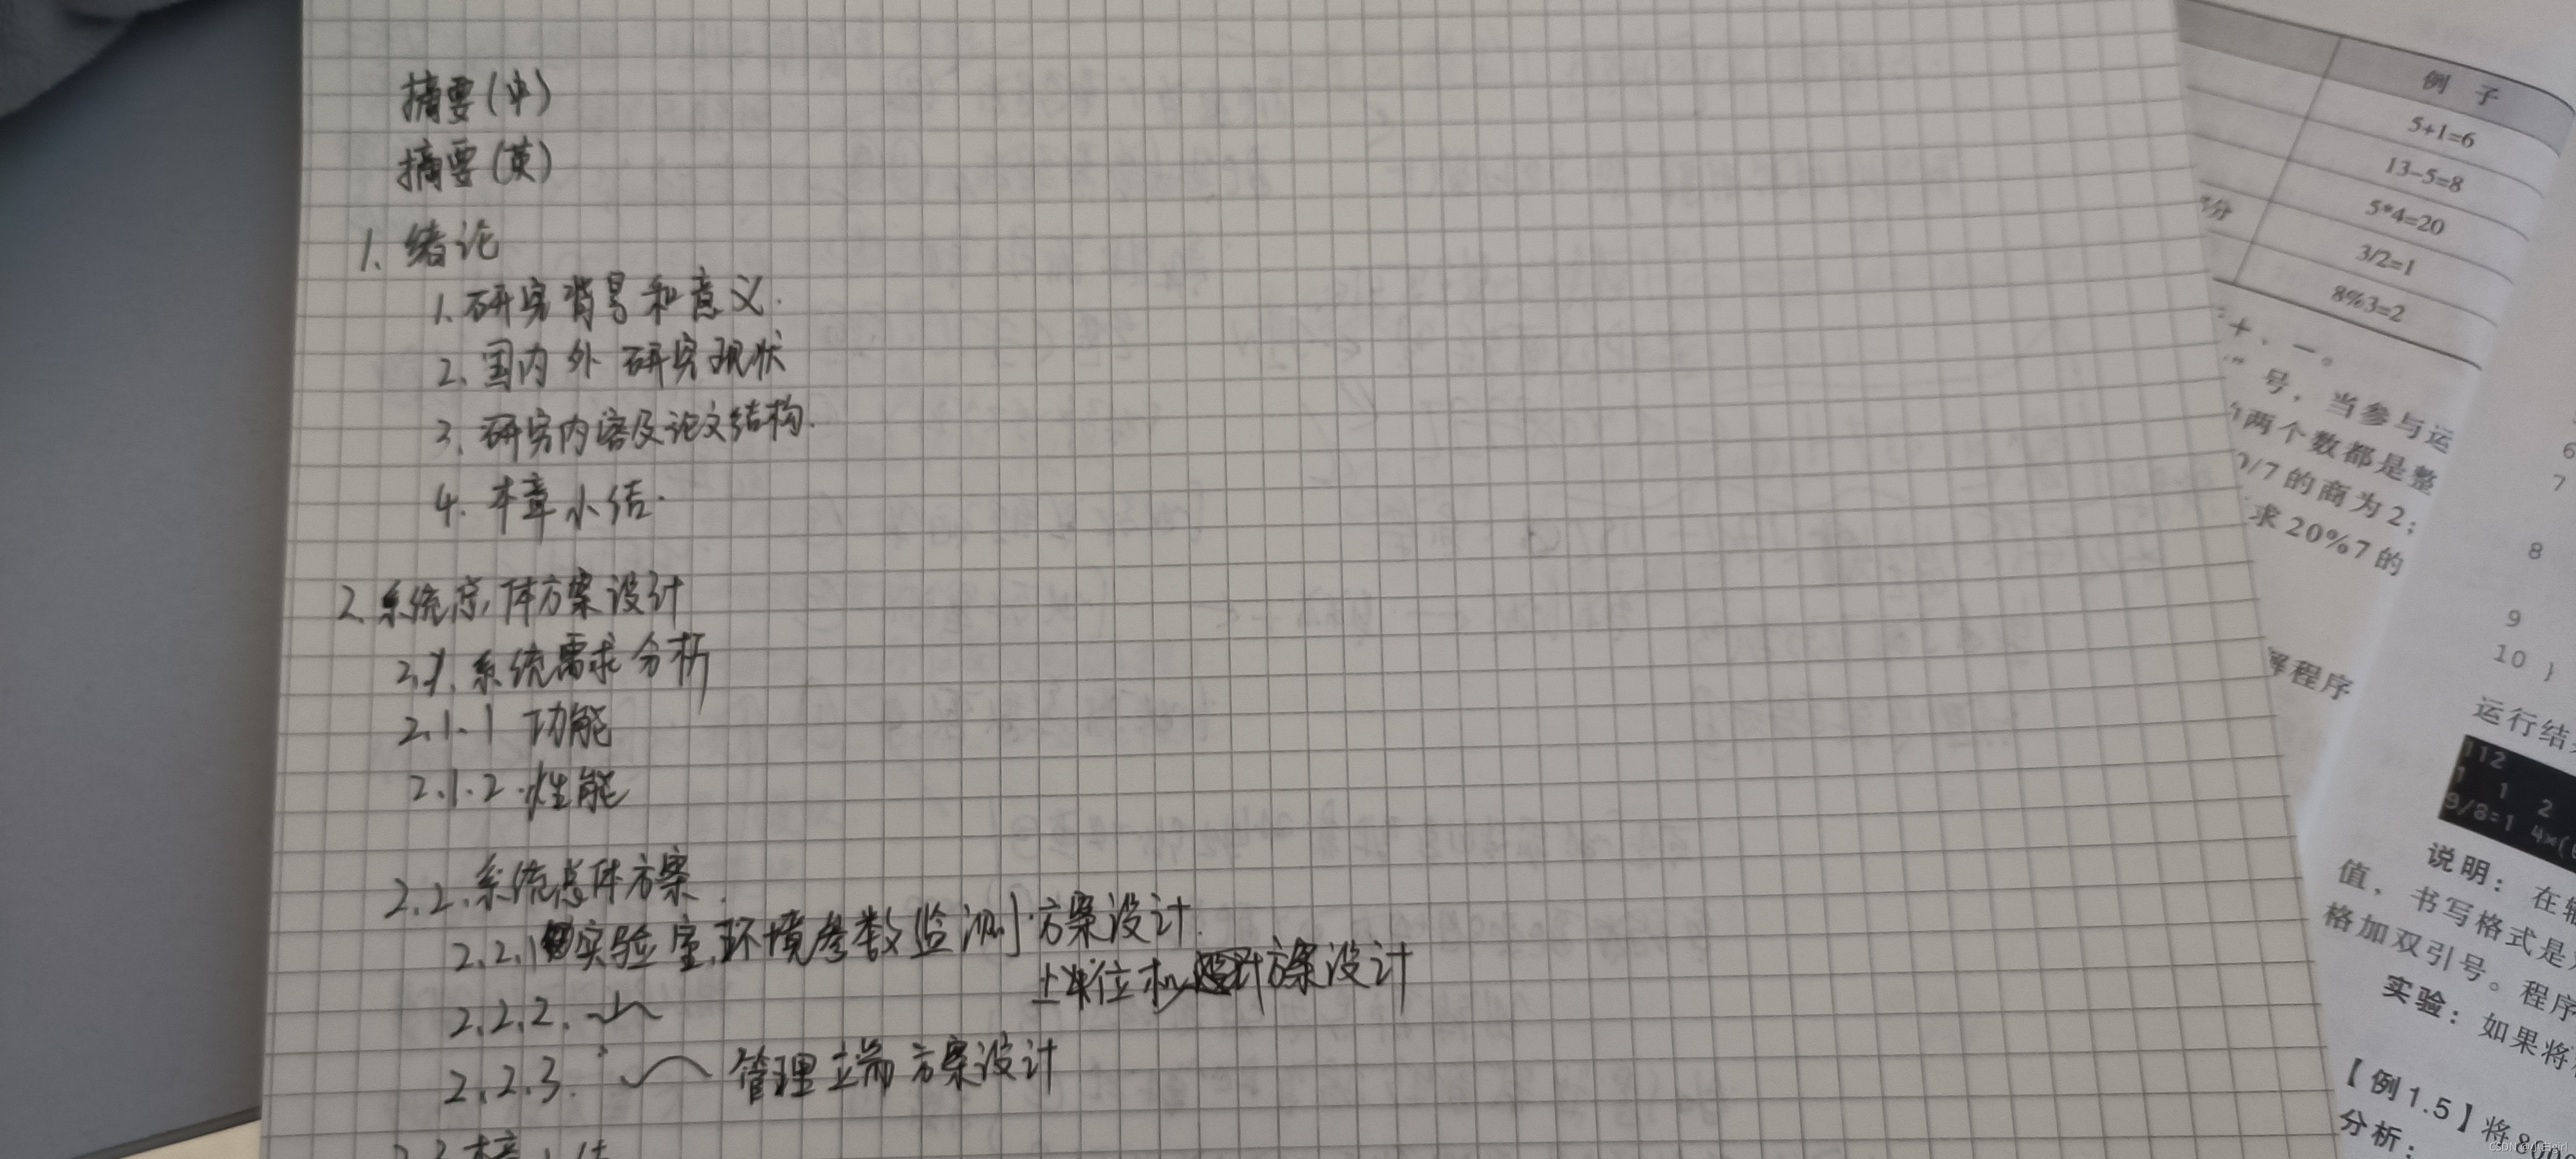 摘要(中)
摘要(英)
1. 绪论
1. 研究背景和意义.
2. 国内外研究现状
3. 研究内容及论文结构.
4. 本章小结.
2. 系统总体方案设计
2.1. 系统需求分析
2.1.1 功能
2.1.2. 性能
2.2. 系统总体方案.
2.2.1 实验室环境参数监测方案设计.
2.2.2. 上位机 方案设计
2.2.3. 管理端方案设计
例 子
5+1=6
13-5=8
5*4=20
3/2=1
8%3=2
+、-。
”号，当参与运
两个数都是整
0/7的商为2；
求20%7的
解程序
6
7
8
9
10 }
运行结
112
1 1 2
9/8=1 4×(
说明：在
值，书写格式是
格加双引号。程序
实验：如果将
【例1.5】将
分析：